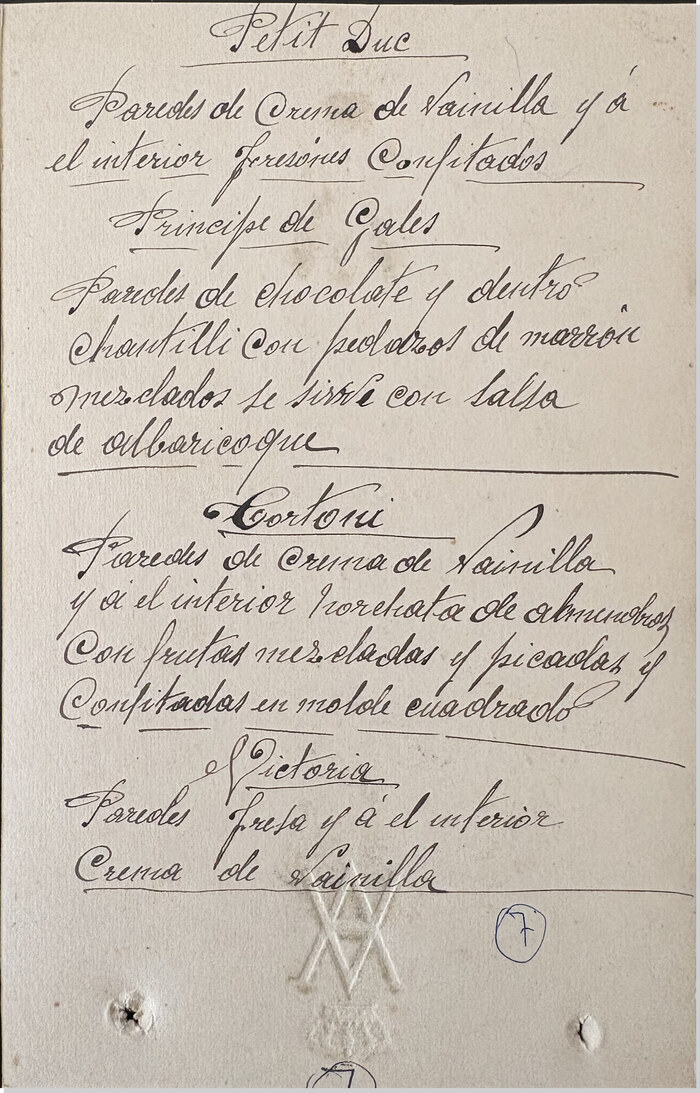 Petit Duc
Paredes de Crema de Vainilla y á
el interior fresónes Confitados
Principe de Gales
Paredes de chocolate y dentro
chantilli Con pedazos de marrón
mezclados se sirve con salsa
de albaricoque
Tortoni
Paredes de Crema de Vainilla
y á el interior horchata de almendras
Con frutas mezcladas y picadas y
Confitadas en molde cuadrado
Victoria
Paredes fresa y á el interior
Crema de Vainilla
7
7